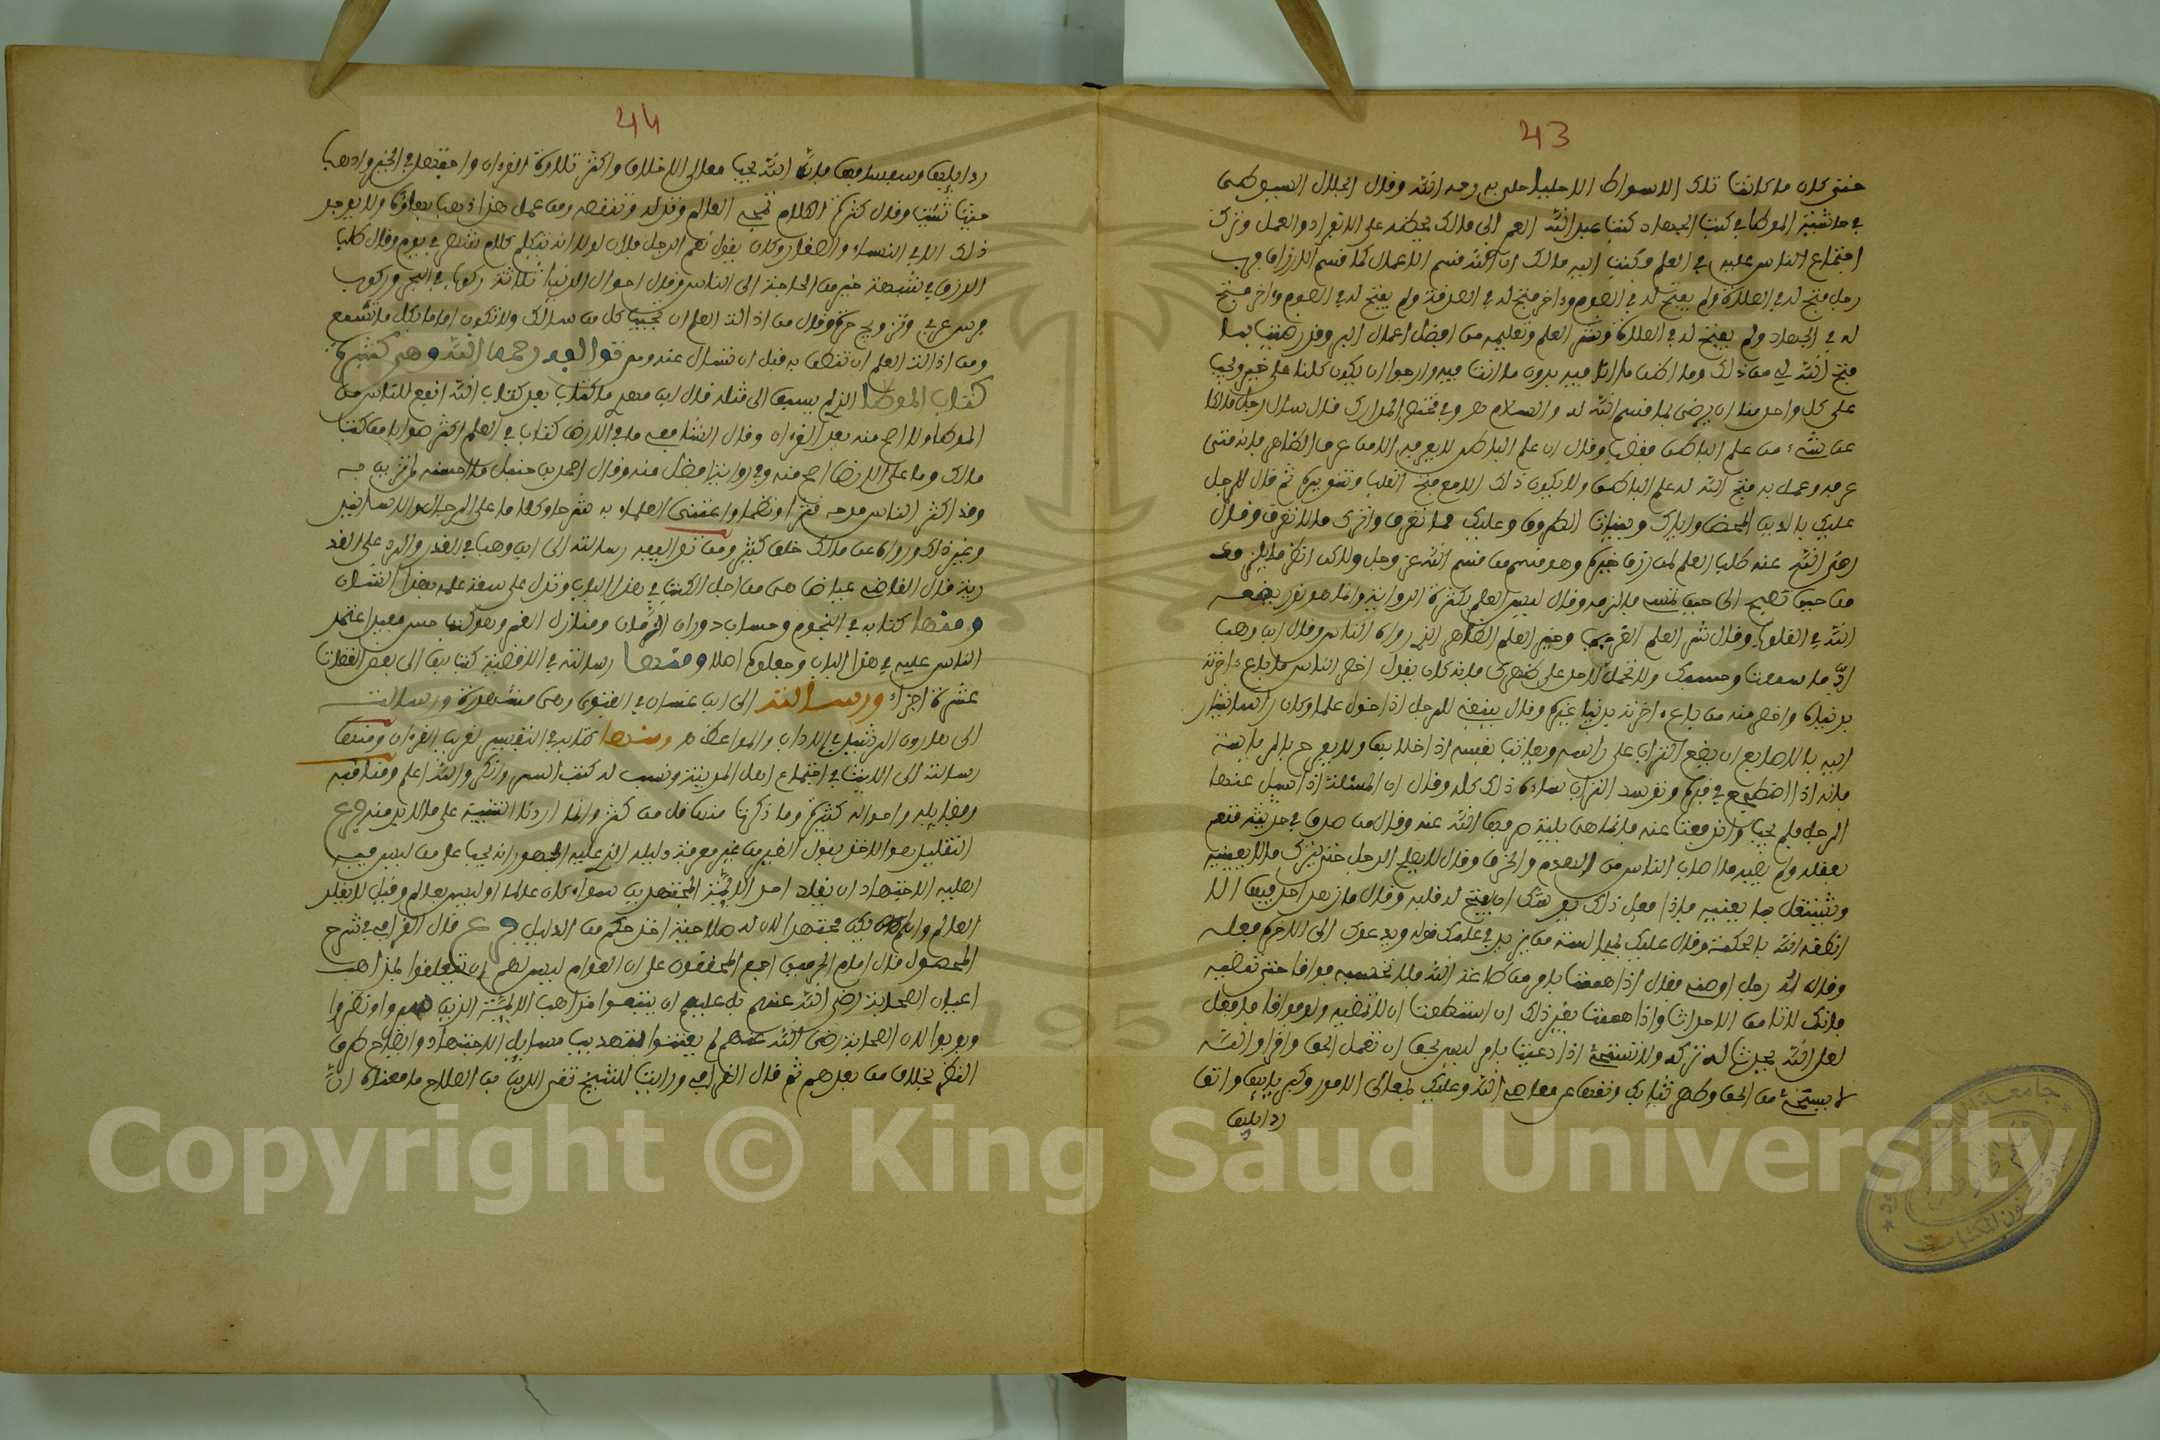 43
حتى كان ما كانت تلك الاسواط الا حليا حلي به رحمه الله وقال الجلال السيوطي
في حاشية الموطا في كتب الجهاد كتب عبد الله العمري الى مالك يحضه على الانفراد والعمل وترك
اجتماع الناس عليه في العلم فكتب اليه مالك ان الله قسم الاعمال كما قسم الارزاق فرب
رجل فتح له في الصلاة ولم يفتح له في الصوم واخر فتح له في الصدقة ولم يفتح له في الصوم واخر فتح
له في الجهاد ولم يفتح له في الصلاة ونشر العلم وتعليمه من افضل اعمال البر وقد رضيت بما
فتح الله لي من ذلك وما اظن ما انا فيه بدون ما انت فيه وارجوا ان يكون كلنا على خير ويجب
على كل واحد منا ان يرضى بما قسم الله له والسلام وفي مختصر المدارك قال سال رجل مالكا
عن شيء من علم الباطن فغضب وقال ان علم الباطن لا يعرفه الا من عرف الظاهر فانه متى
عرفه وعمل به فتح الله له علم الباطن ولا يكون ذلك الا مع فتح القلب وتنويره ثم قال للرجل
عليك بالدين المحض واياك وبنيات الطريق وعليك بما تعرف واترك ما لا تعرف وقال
رضي الله عنه طلب العلم لمن رزق خيره وهو قسم من قسم الله عز وجل ولكن انظر ما يلزمك
من حين تصبح الى حين تمسي فالزمه وقال ليس العلم بكثرة الرواية وانما هو نور يضعه
الله في القلوب وقال شر العلم الغريب وخير العلم الظاهر الذي رواه الناس وقال ابن وهب
ادّ ما سمعت وحسبك ولا تحمل لاحد على ظهرك فانه كان يقول اخسر الناس من باع اخرته
بدنياه واخسر منه من باع اخرته بدنيا غيره وقال ينبغي للرجل اذا خول علما وكان راسا يشار
اليه بالاصابع ان يضع التراب على راسه ويعاتب نفسه اذا خلا بها ولا يفرح بالرياسة
فانه اذا اضطجع في قبره وتوسد التراب ساءه ذلك كله وقال ان المسئلة اذا سيل عنها
الرجل فلم يجب واندفعت عنه فانما هي بلية صرفها الله عنه وقال من صدق في حديثه متع
بعقله ولم يصبه ما اصاب الناس من الهرم والخرف وقال لا يصلح الرجل حتى يترك ما لا يعنيه
ويشتغل بما يعنيه فاذا فعل ذلك يوشك ان يفتح له قلبه وقال ما زهد احد فيها الا
انطقه الله بالحكمة وقال عليك بمجالسة من يزيد في علمك قوله ويدعوك الى الاخرة فعله
وقال له رجل اوصني فقال اذا هممت بامر من طاعة الله فلا تحبسه فواقا حتى تمضيه
فانك لا تامن الاحداث واذا هممت بغير ذلك ان استطعت ان لا تمضيه ولو فواقا فافعل
لعل الله يحدث لك تركه ولا تستحي اذا دعيت بامر ليس بحق ان تعمل الحق واقرا والله
لا يستحي من الحق وطهر ثيابك ونقها عن معاصي الله وعليك بمعالي الامور وكبرياتها واتق
رذايلها
44
رذايلها وسفسافها فان الله يحب معالي الاخلاق واكثر تلاوة القرءان واجتهد في الخير واذهب
حيث شيت وقال كثرة الكلام تمج العالم وتذله وتنقصه ومن عمل هذا ذهب بهاؤه ولا يوجد
ذلك الا في النساء والصغار وكان يقول نعم الرجل فلان لولا انه يتكلم كلام شهر في يوم وقال طلب
الرزق في شبهة خير من الحاجة الى الناس وقال احوال الدنيا ثلاثة ركوب في البحر وركوب
فرس عربي وتزويج حرة وقال من اذالة العلم ان تجيب كل من سالك ولا تكون اماما بكل ما تسمع
ومن اذالة العلم ان تنطق به قبل ان تسال عنه ومن تواليفه رحمه الله وهي كثيرة
كتاب الموطا الذي لم يسبق الى مثله قال ابن مهدي ما كتاب بعد كتاب الله انفع للناس من
الموطا ولا اصح منه بعد القرءان وقال الشافعي ما في الارض كتاب في العلم اكثر صوابا من كتاب
مالك وما على الارض اصح منه وفي رواية افضل منه وقال احمد بن حنبل ما احسنه لمن تدين به
وقد اكثر الناس مدحه نثرا ونظما واعتنى العلماء به شرحا وكلاما على الرجال والاسانيد
وغير ذلك ورواه عن مالك خلق كثير ومن تواليفه رسالته الى ابن وهب في القدر والرد على القد
رية قال القاضي عياض هي من اجل الكتب في هذا الباب وتدل على سعة علمه بهذا الشان
ومنها كتابه في النجوم وحساب دوران الزمان ومنازل القمر وهو كتاب حسن مفيد اعتمد
الناس عليه في هذا الباب وجعلوه اصلا ومنها رسالته في الاقضية كتب بها الى بعض القضاة
عشرة اجزاء ورسالته الى ابن غسان في الفتوى وهي مشهورة ورسالته
الى هارون الرشيد في الاداب والمواعظ ومنها كتابه في التفسير لغريب القرءان ومنها
رسالته الى الليث في اجماع اهل المدينة ونسب له كتاب السر وانكر والله اعلم ومناقبه
وفضايله واحواله كثيرة وما ذكرنا منها قل من كثر وانما اردنا التنبيه على ما لا بد منه فرع
التقليد هو الاخذ بقول الغير من غير معرفة دليله الذي عليه الجمهور انه يجب على من ليس فيه
اهلية الاجتهاد ان يقلد احد الايمة المجتهدين سواء كان عالما او ليس بعالم وقيل لا يقلد
العالم وان لم يكن مجتهدا لان له صلاحية اخذ حكم من الدليل فرع قال القرافي في شرح
المحصول قال امام الحرمين اجمع المحققون على ان العوام ليس لهم ان يتعلقوا بمذاهب
اعيان الصحابة رضي الله عنهم بل عليهم ان يتبعوا مذاهب الايمة الذين سبروا ونظروا
وبوبوا لان الصحابة رضي الله عنهم لم يعتنوا بتهذيب مسايل الاجتهاد وايضاح طرق
النظر بخلاف من بعدهم ثم قال القرافي ورايت للشيخ تقي الدين بن الصلاح ما معناه ان
جامعة الرياض
Copyright © King Saud University
1957